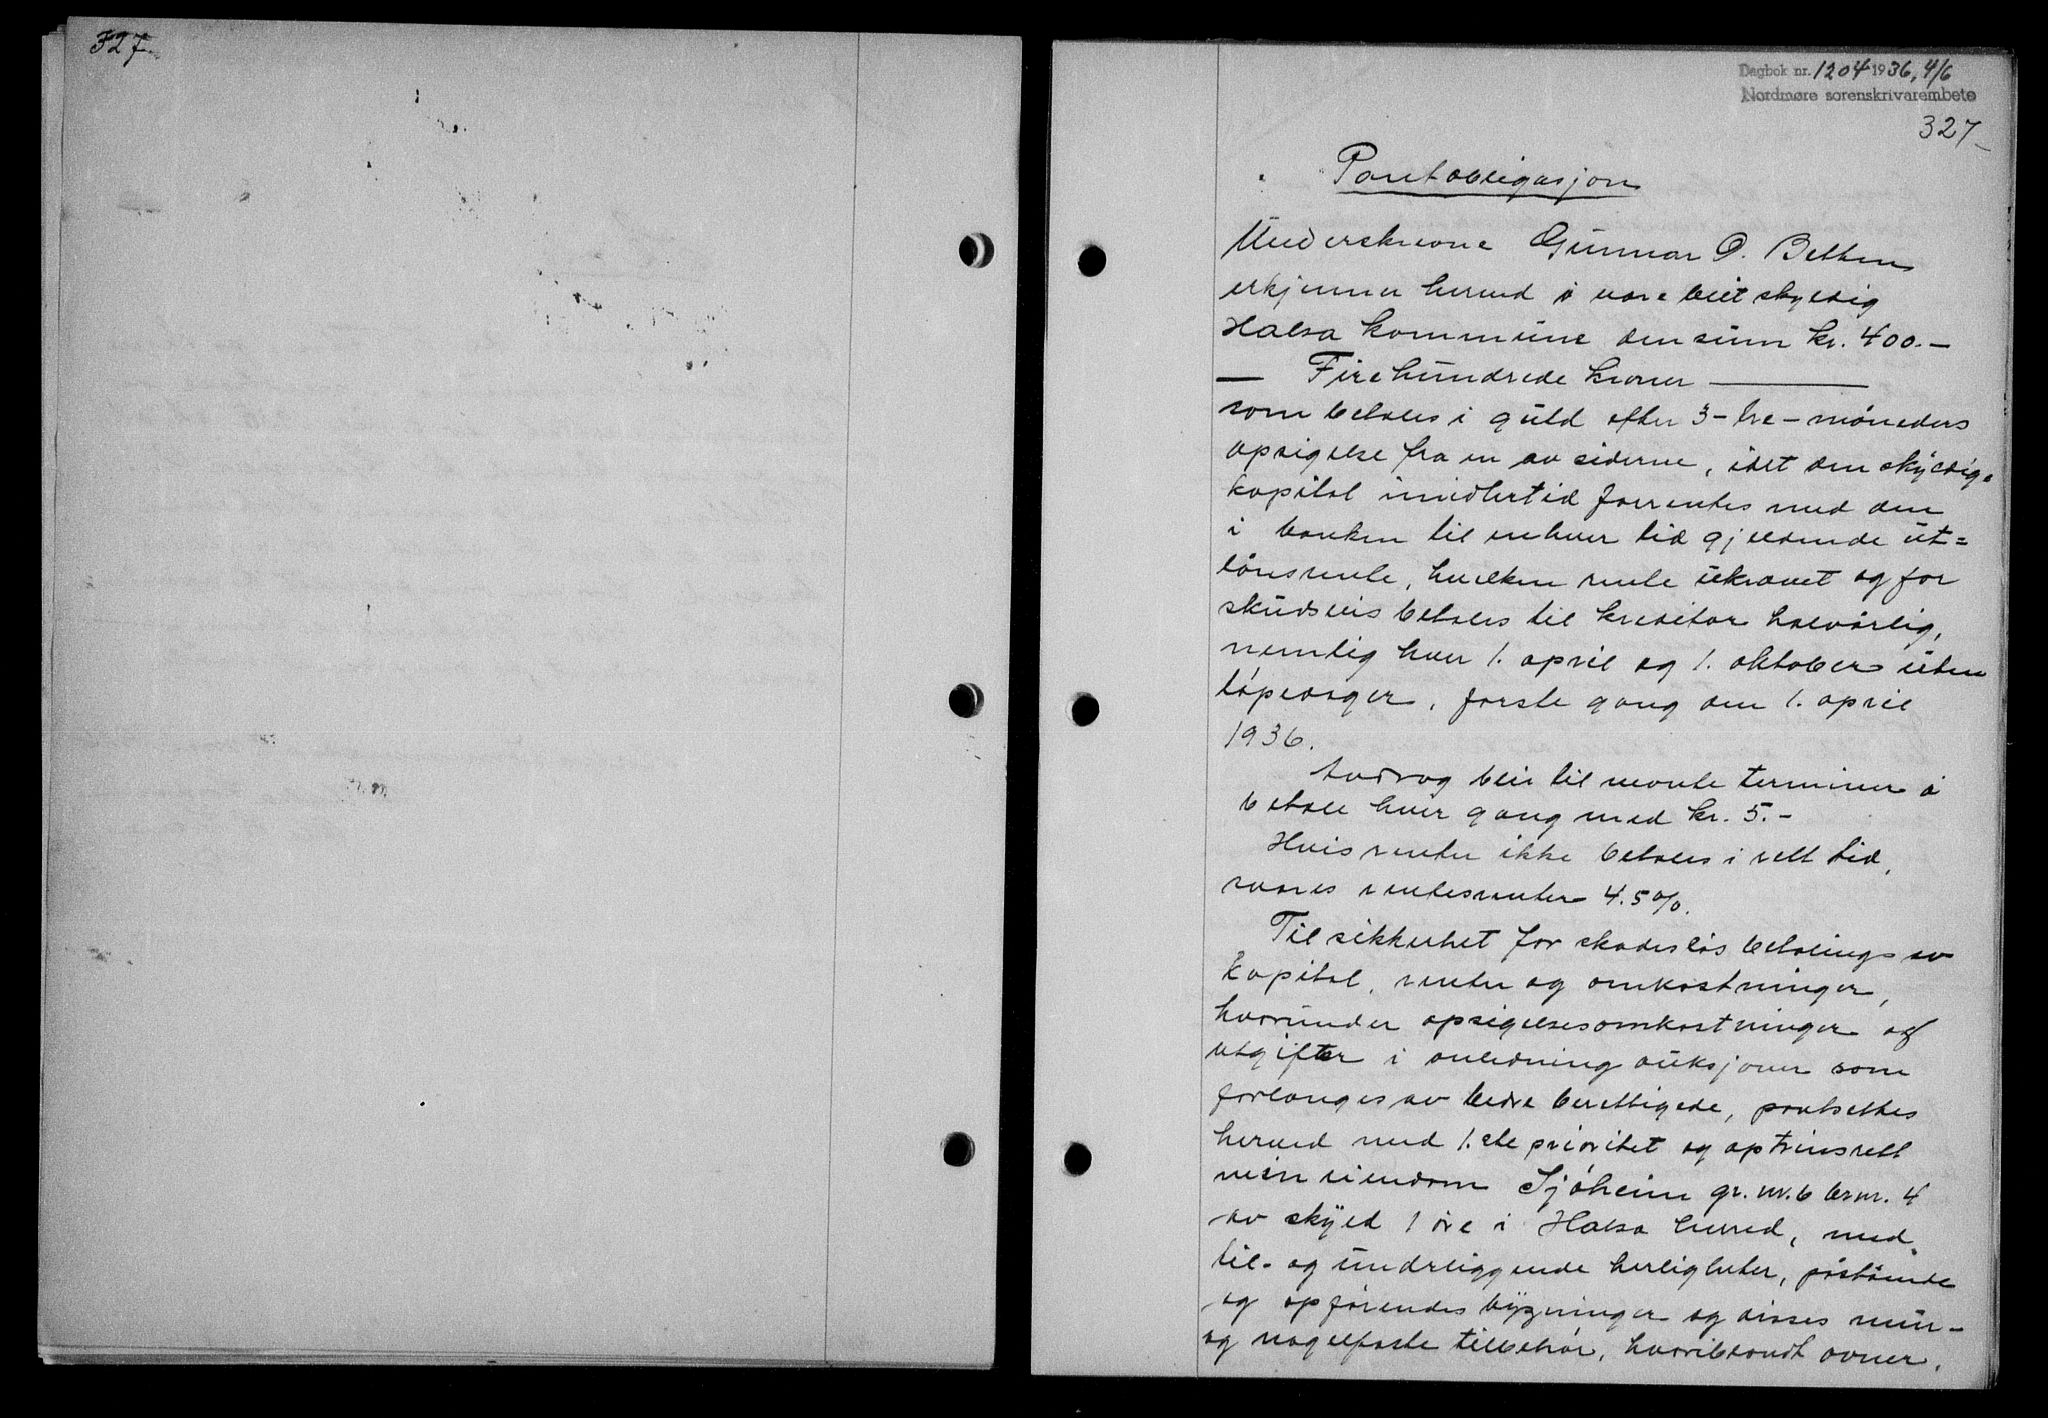 327.
Dagbok nr. 1204 1936, 4/6
Nordmøre sorenskrivarembete
327
Pantobligasjon
Underskrevne Gunnar O. Betten
erkjenner herved å være blitt skyldig
Halsa kommune den sum kr. 400.-
— Firehundrede kroner —
som betales i guld efter 3-tre-måneders
opsigelse fra en av siderne, idet den skyldige
kapital imidlertid forrentes med den
i banken til enhver tid gjeldende ut=
lånsrente, hvilken rente ukrævet og for
skudsvis betales til kreditor halvårlig,
nemlig hver 1. april og 1. oktober uten
løpedager, første gang den 1. april
1936.
Avdrag blir til nevnte terminer å
betale hver gang med kr. 5.-
Hvis renter ikke betales i rett tid,
svares rentesrenter 4.5%.
Til sikkerhet for skadesløs betaling av
kapital, renter og omkostninger,
hvorunder opsigelsesomkostninger og
utgifter i anledning auksjoner som
forlanges av bedre berettigede, pantsettes
herved med 1.ste prioritet og optrinsrett
min eiendom Sjøheim gr. nr. 6 br.nr. 4
av skyld 1 øre i Halsa herred, med
til- og underliggende herligheter, påstående
og opførendes bygninger og disses mur-
og nagelfaste tilbehør, hvoriblandt ovner,